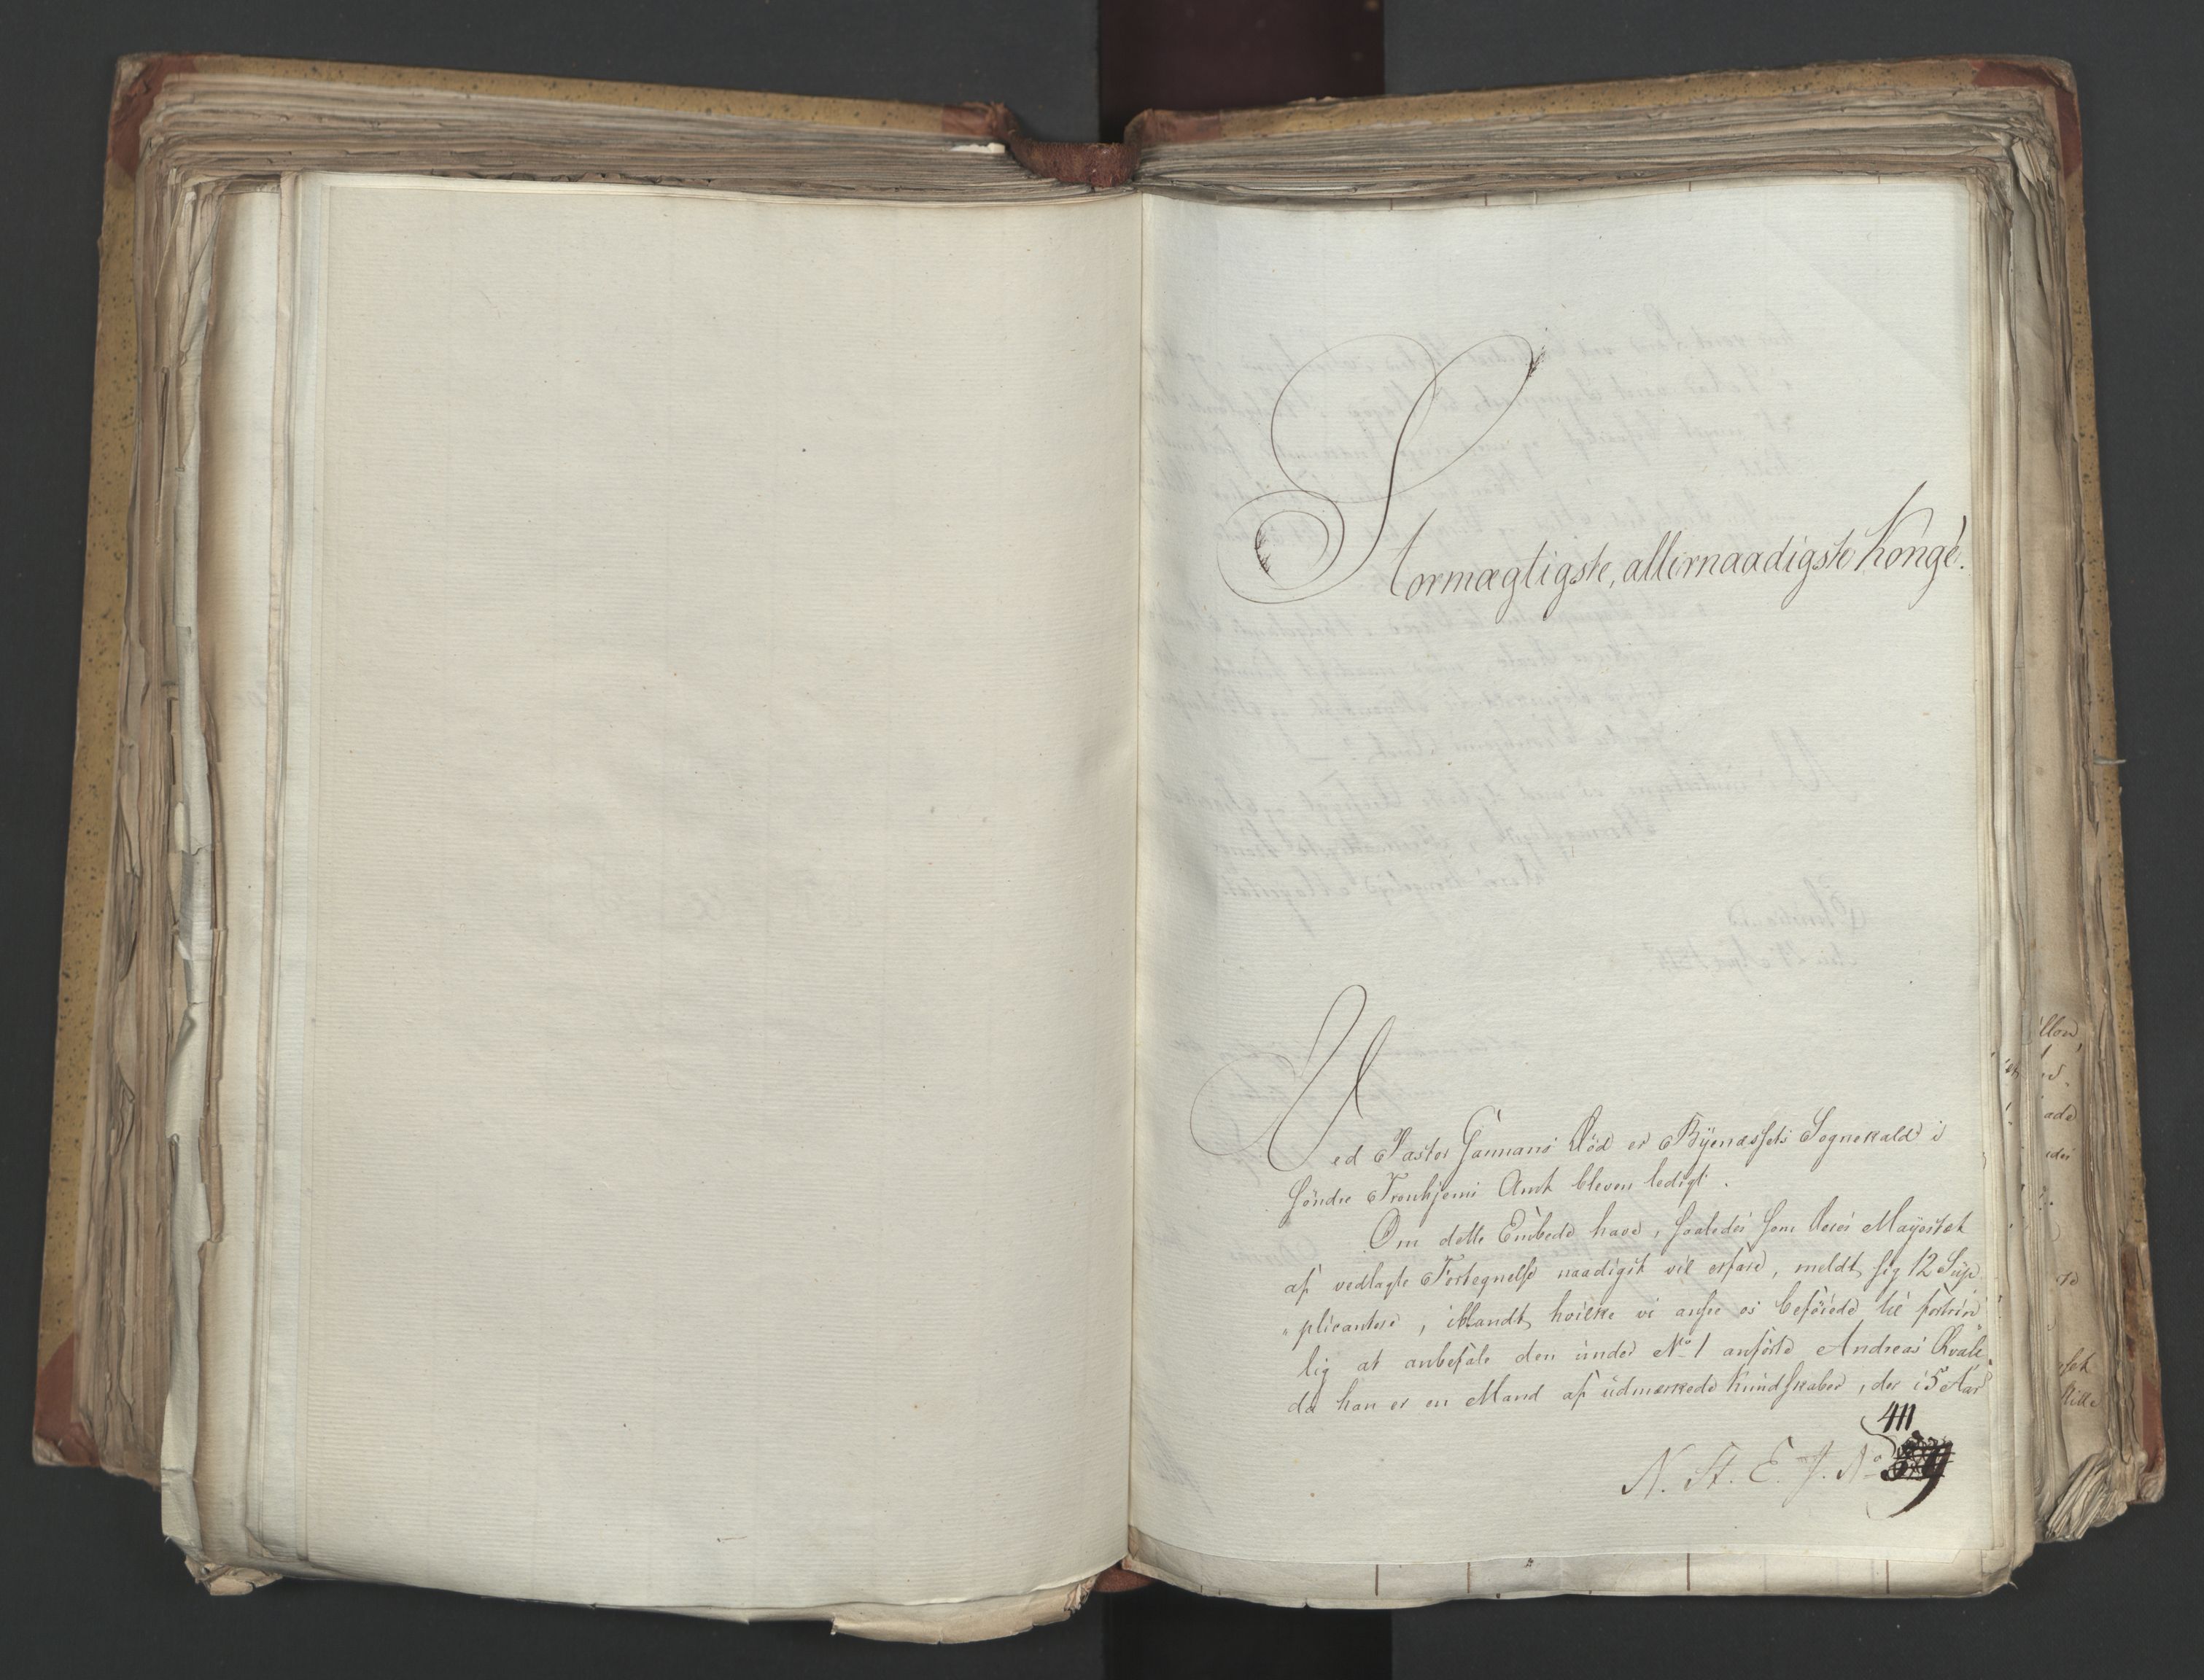 Stormægtigste, allernaadigste Konge.
Ved Pastor Garmans Död er Byenæssets Sognekald i
Söndre Tronhjems Amt bleven ledigt.
Om dette Embede have, saaledes som Deres Mayestæt
af vedlagte Fortegnelse naadigst vil erfare, meldt sig 12 Sup„
„plicantere, iblandt hvilke vi ansee os beföiede til fortrin„
lig at anbefale den under No 1 anförte Andreas Qvale
da han er en Mand af udmærkede Kundskaber, der i 5 Aar
411
N. St. E. J. No